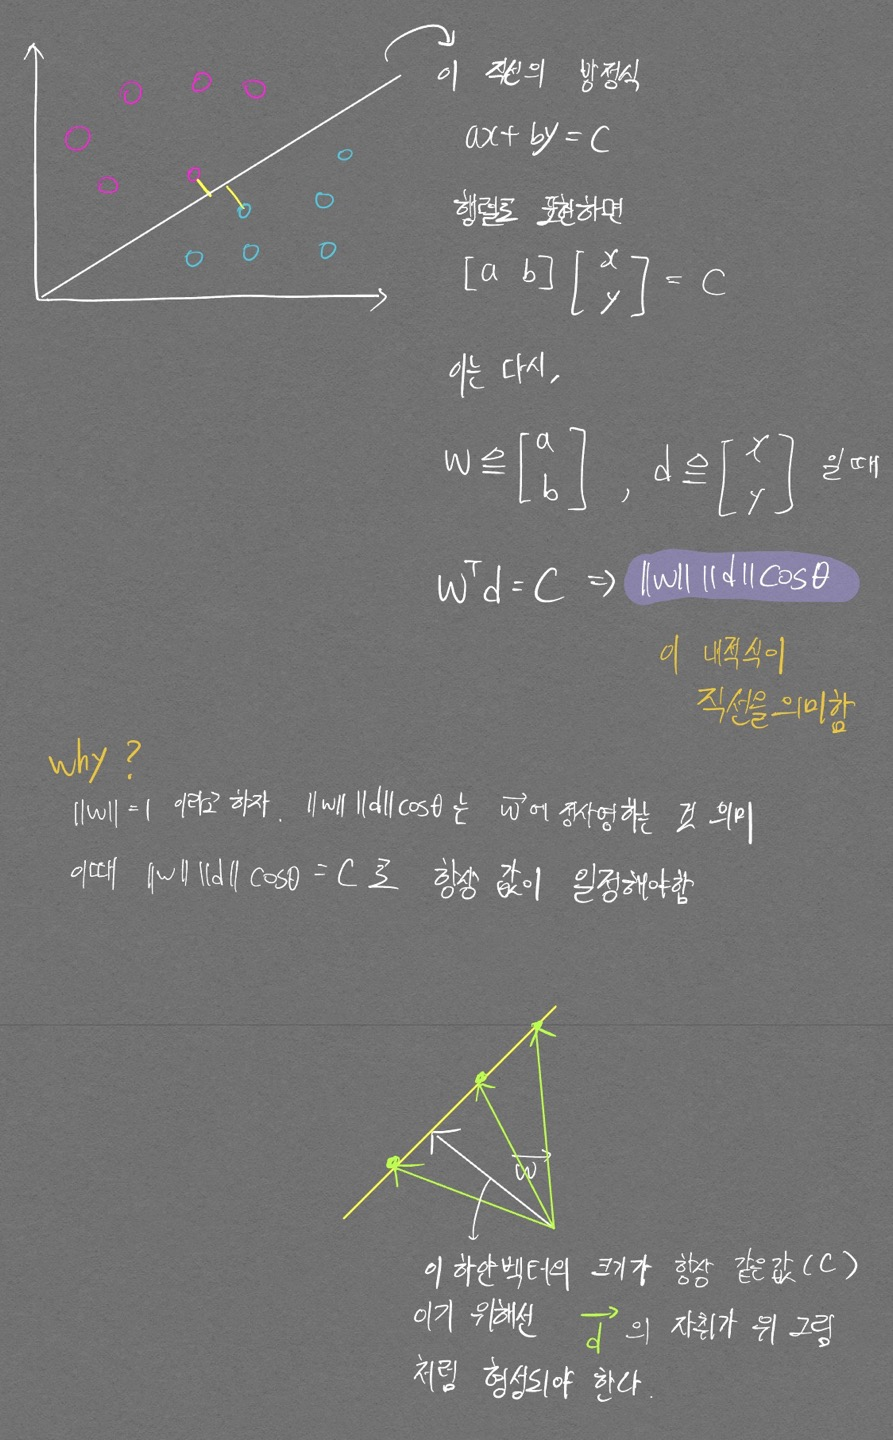 이 직선의 방정식
ax + by = C
행렬로 표현하면
[a b] [x y] = C
이는 다시,
w ≜ [a b] , d ≜ [x y] 일 때
wᵀd = C ⇒ ||w|| ||d|| cosθ
이 내적식이
직선을 의미함
why ?
||w|| = 1 이라고 하자. ||w|| ||d|| cosθ 는 w⃗에 정사영하는 것 의미
이때 ||w|| ||d|| cosθ = C 로 항상 값이 일정해야함
w⃗
이 하얀벡터의 크기가 항상 같은값(C)
이기 위해선 d⃗ 의 자취가 위 그림
처럼 형성되야 한다.